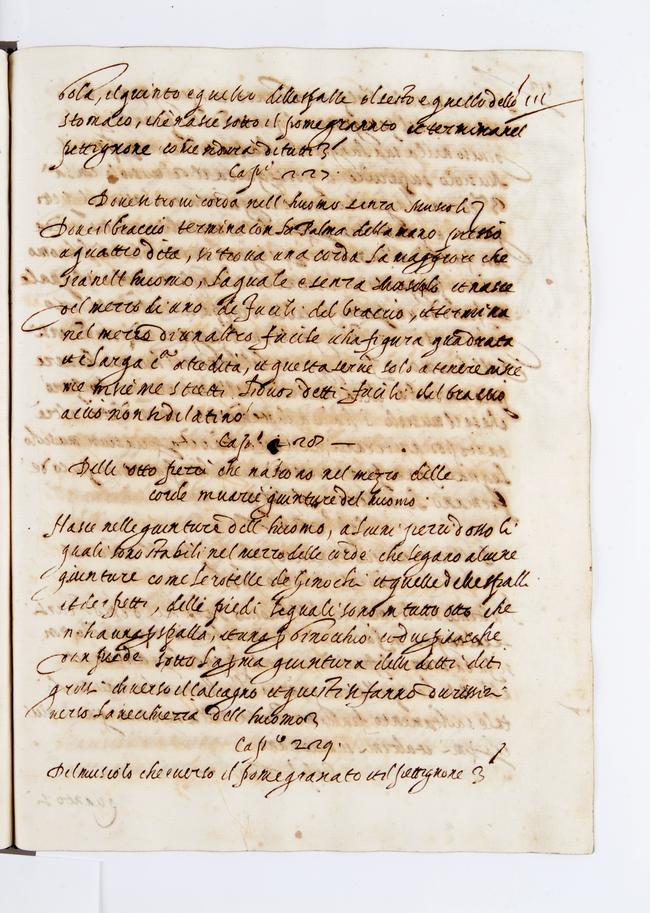 gola, il quinto e quello delle spalle il sesto e quello dello 111
stomaco, che nasce sotto il pomegrannto et termina nel
pettignone come
Cap.º 227.
Dove si trovi corda nell huomo senza Musculi
Dove il braccio termina con la palma della mano presso
a quattro dita, si trova una corda la maggiore che
sia nell huomo, la quale e senza Musculo et nasce
del mezzo di uno de fucili del braccio, et termina
nel mezzo di un altro fucile et ha figura quadrata
et e larga tre dita, et questa serve solo a tenere insie
me insieme li detti fucili del braccio
accio non si dilatino
Cap.º 228 —
Delli otto pezzi che nascono nel mezzo delle
corde in varie giunture del huomo.
Nasce nelle giunture dell huomo, alcuni pezzi d osso li
quali sono stabili nel mezzo delle corde che legano alcune
giunture come le rotelle de ginochi et quelle delle spalle
et de petti, delli piedi le quali sono in tutto otto che
n ha una p spalla, et una p ginocchio et due p
piede sotto la pma giuntura delli detti diti
grossi di verso il calcagno et questi si fanno durissimi
verso la vecchiezza dell huomo
Cap.º 229.
Del musculo che e verso il pomegranato et il pettignone